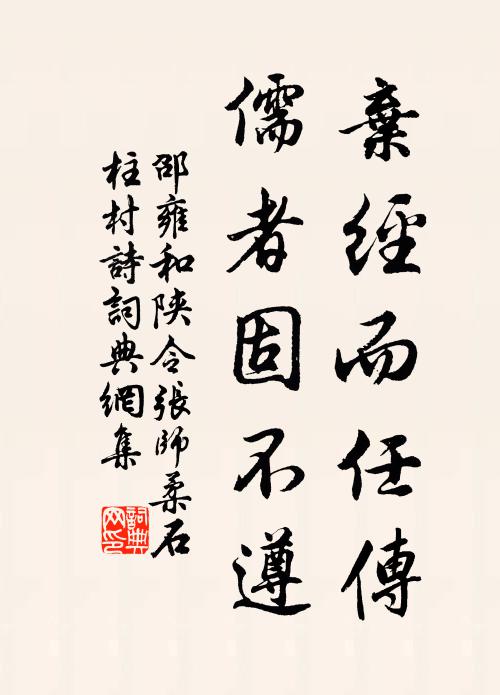 棄經而任傳
儒者固不遵
邵雍和陝令張師柔石
柱村詩詞典網集
詞典
网印